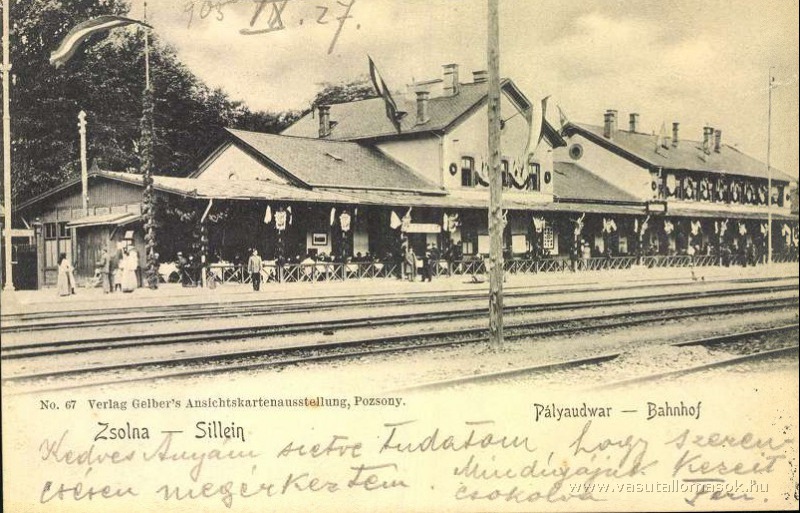 905 IX. 27.
No. 67 Verlag Gelber's Ansichtskartenausstellung, Pozsony.
Zsolna — Sillein
Pályaudwar — Bahnhof
Kedves Anyám sietve tudatom, hogy szeren-
csésen megérkeztem. Mindnyájuk kezeit
csókolva Feri.
www.vasutallomasok.hu